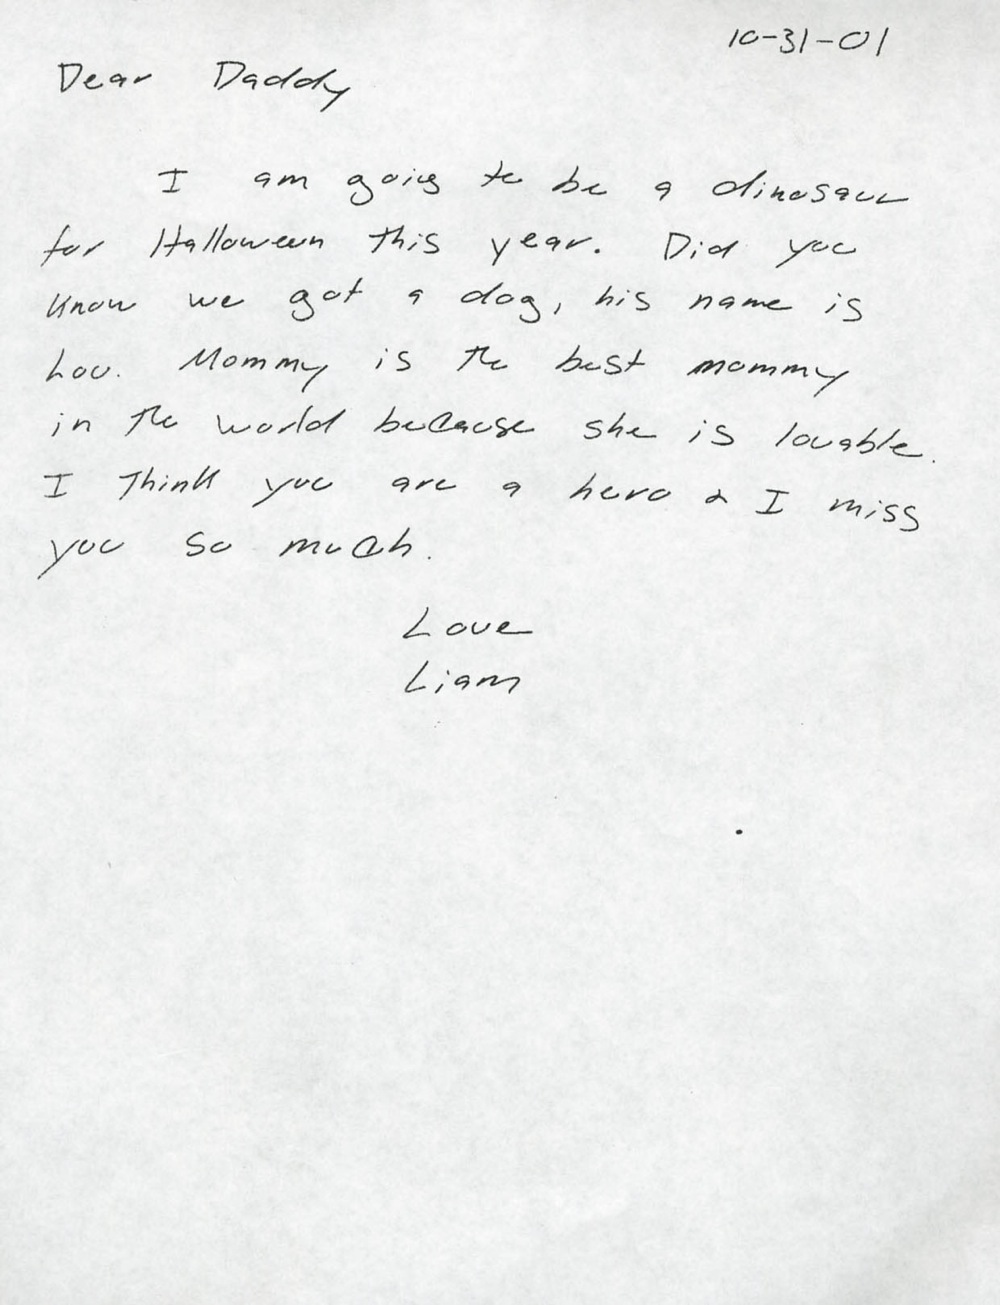 10-31-01
Dear Daddy
I am going to be a dinosaur
for Halloween this year. Did you
know we got a dog, his name is
Lou. Mommy is the best mommy
in the world because she is lovable.
I think you are a hero & I miss
you so much.
Love
Liam